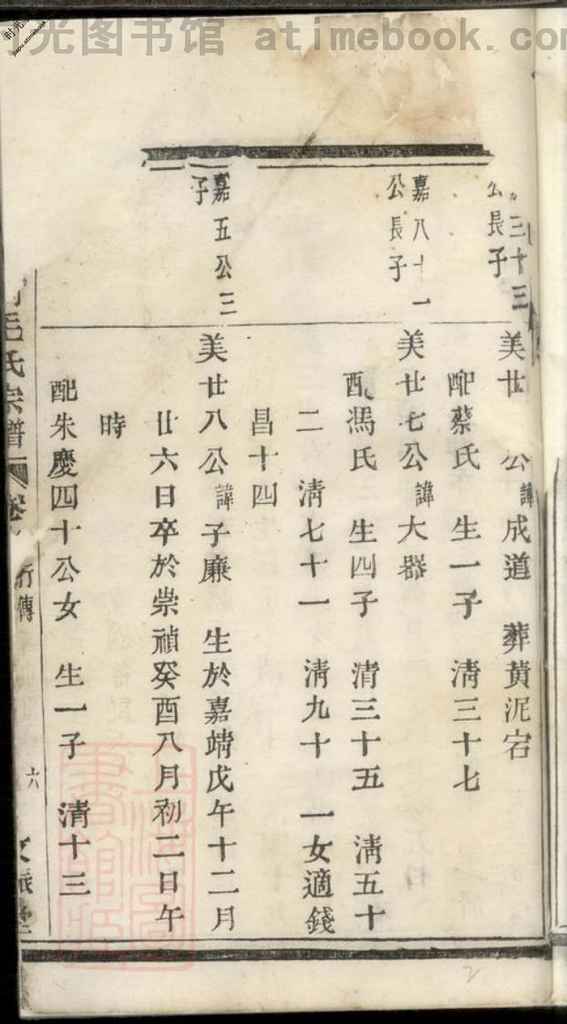 光图书馆 atimebook.com
三十三
公長子
美廿 公諱成道 葬黃泥宕
配蔡氏 生一子 淸三十七
嘉八十一
公長子
美廿七公諱大器
配馮氏 生四子 淸三十五 淸五十
二 淸七十一 淸九十 一女適錢
昌十四
嘉五公三
子
美廿八公諱子廉 生於嘉靖戊午十二月
廿六日卒於崇禎癸酉八月初二日午
時
配朱慶四十公女 生一子 淸十三
毛氏宗譜
卷
行傳
六